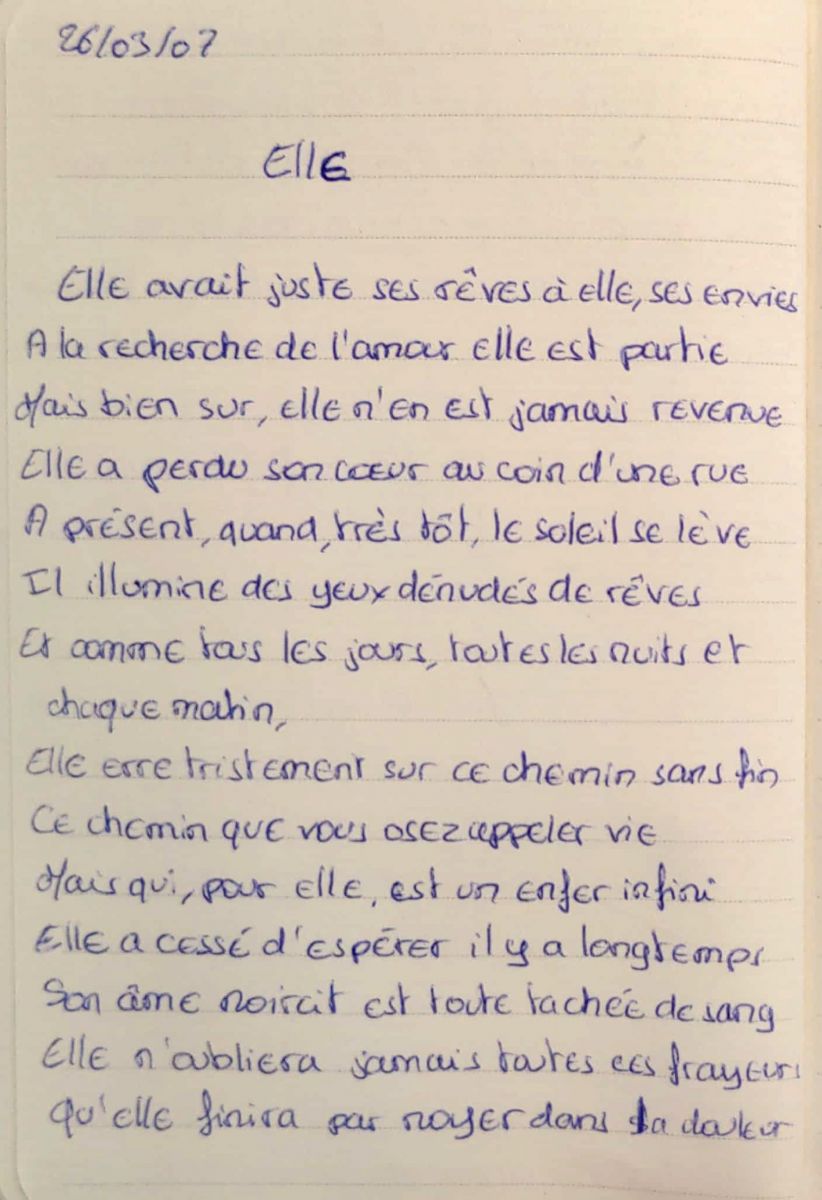 26/03/07
Elle
Elle avait juste ses rêves à elle, ses envies
A la recherche de l'amour elle est partie
Mais bien sur, elle n'en est jamais revenue
Elle a perdu son cœur au coin d'une rue
A présent, quand, très tôt, le soleil se lève
Il illumine des yeux dénudés de rêves
Et comme tous les jours, toutes les nuits et
chaque matin,
Elle erre tristement sur ce chemin sans fin
Ce chemin que vous osez appeler vie
Mais qui, pour elle, est un enfer infini
Elle a cessé d'espérer il y a longtemps
Son âme noircit est toute tachée de sang
Elle n'oubliera jamais toutes ces frayeurs
Qu'elle finira par noyer dans la douleur